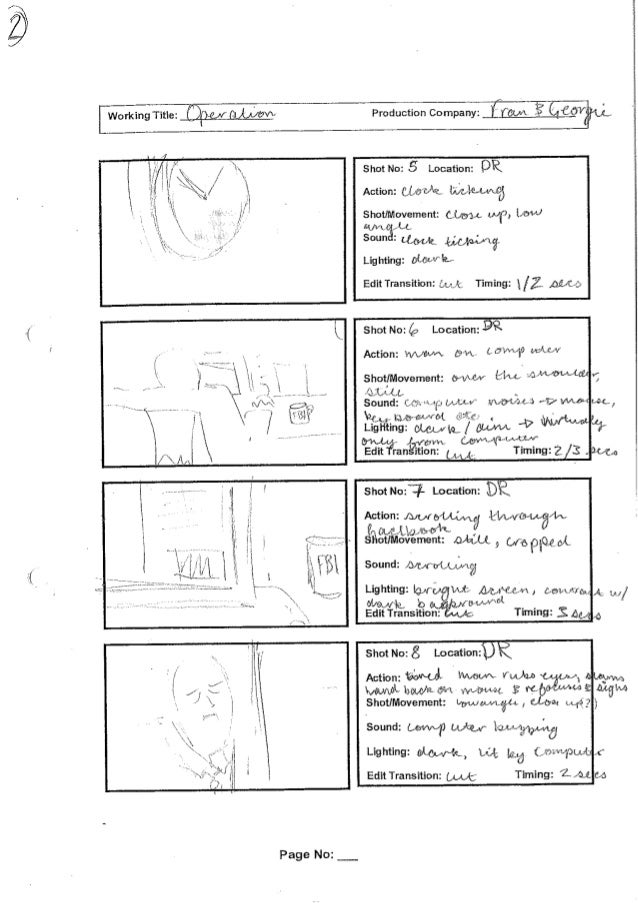 2
Working Title: Operation Production Company: Fran & Georgie
Shot No: 5 Location: DR
Action: clock ticking
Shot/Movement: close up, low
angle
Sound: clock ticking
Lighting: dark
Edit Transition: cut Timing: 1/2 secs
FBI
Shot No: 6 Location: DR
Action: man on computer
Shot/Movement: over the shoulder,
still
Sound: computer noises → mouse,
keyboard etc
Lighting: dark / dim → virtually
only from computer
Edit Transition: cut Timing: 2/3 secs
FBI
Shot No: 7 Location: DR
Action: scrolling through
facebook
Shot/Movement: still, cropped
Sound: scrolling
Lighting: bright screen, contrast w/
dark background
Edit Transition: cut Timing: 3 secs
Shot No: 8 Location: DR
Action: tired man rubs eyes, slams
hand back on mouse & refocuses & sighs
Shot/Movement: low angle, close up?)
Sound: computer buzzing
Lighting: dark, lit by computer
Edit Transition: cut Timing: 2 secs
Page No: